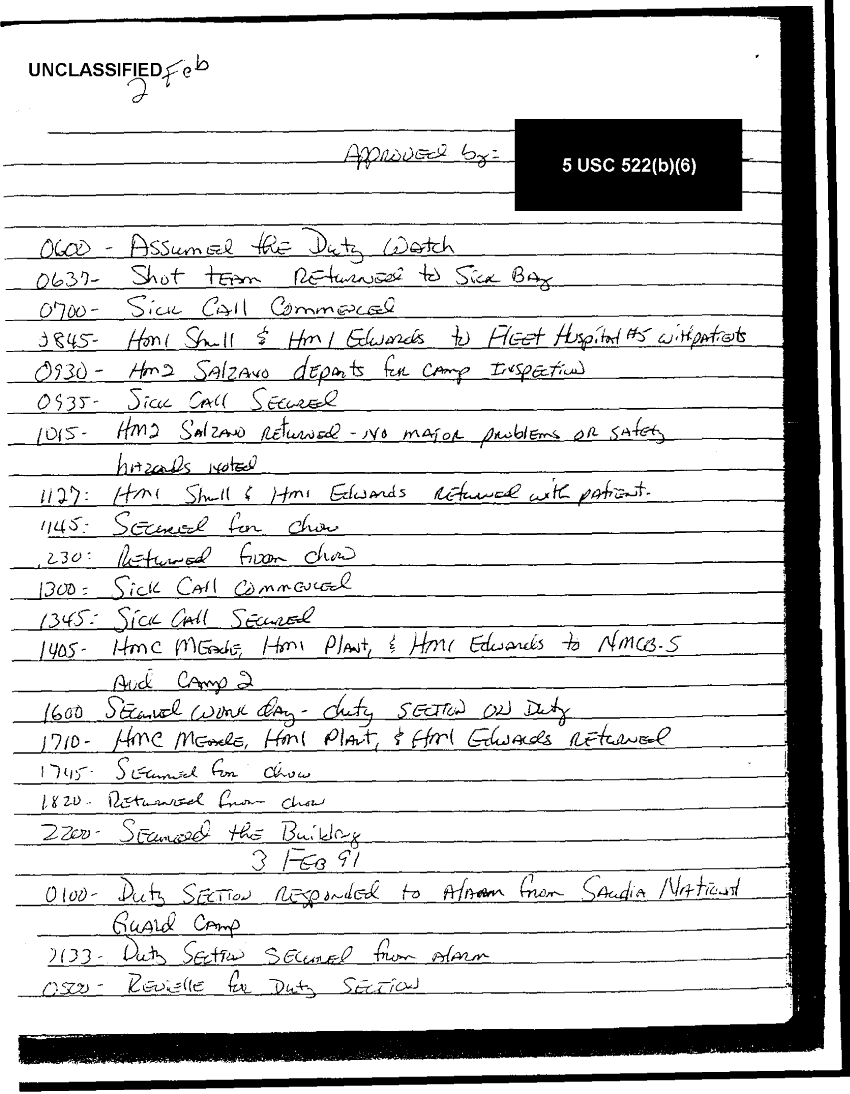 UNCLASSIFIED Feb
2
Approved by:
5 USC 522(b)(6)
0600 - Assumed the Duty Watch
0637- Shot team Returned to Sick Bay
0700- Sick Call Commenced
0845- Hm1 Shull & Hm1 Edwards to Fleet Hospital #5 with patients
0930- Hm2 Salzano departs for camp Inspection
0935- Sick Call Secured
1015- HM2 Salzano returned - No major problems or safety
hazards noted
1127: HM1 Shull & Hm1 Edwards returned with patient.
1145: Secured for chow
1230: Returned from chow
1300: Sick Call Commenced
1345: Sick Call Secured
1405- HMC Meade, Hm1 Plant, & HM1 Edwards to NMCB-5
And Camp 2
1600 Secured work day - duty section on Duty
1710- HMC Meade, HM1 Plant, & HM1 Edwards Returned
1745- Secured for chow
1820- Returned from chow
2200- Secured the Building
3 Feb 91
0100- Duty Section Responded to Alarm from Saudia National
Guard Camp
0133- Duty Section secured from Alarm
0500- Revielle for Duty Section